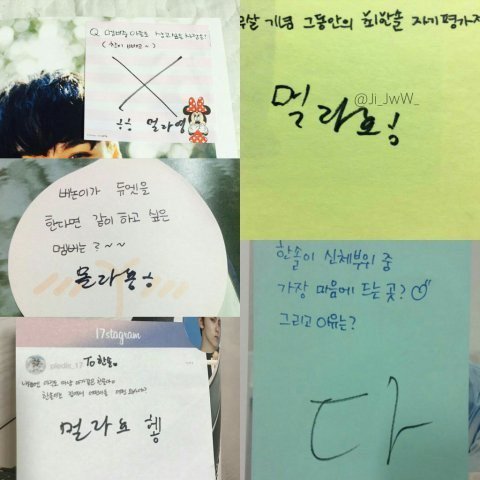 Q 멤버중
(찬이 빼고~)
멀라영
버논이가 듀엣을
한다면 같이 하고 싶은
멤버는? ~~
몰라용
17stagram
pledis_17 To 한솔
멀라요
살 기념 그동안의 최한솔 자기평가
@Ji_JwW_
멀라요!
한솔이 신체부위 중
가장 마음에 드는 곳?
그리고 이유는?
다